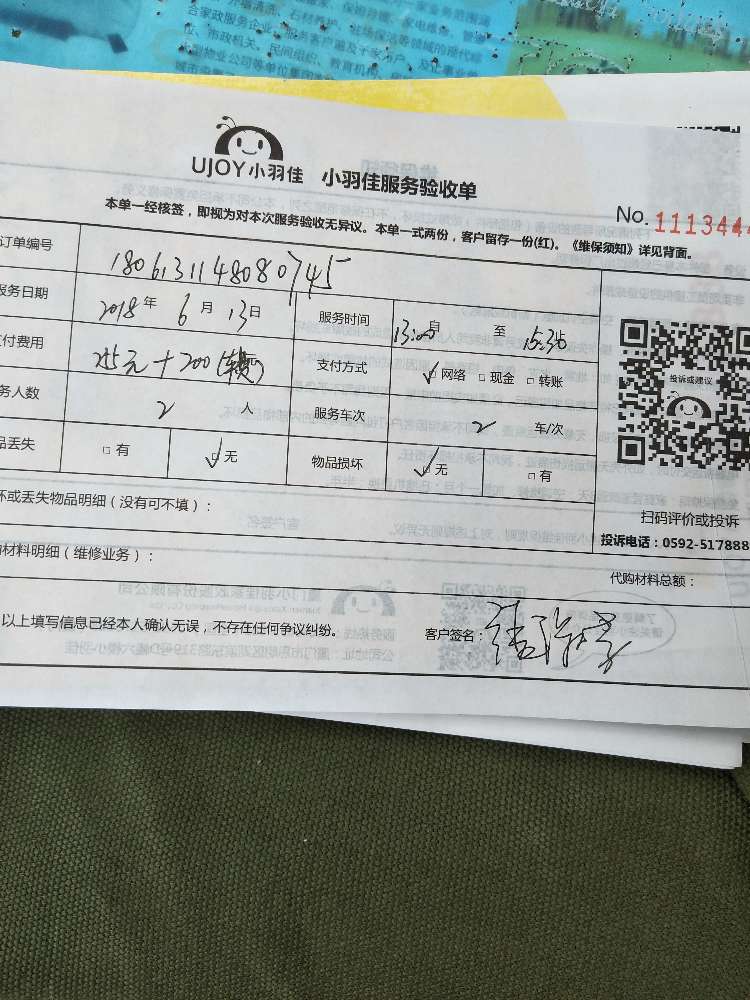 合家政服务企业
位、市政机关、民间组织、教育机构
UJOY小羽佳 小羽佳服务验收单
No.111344
本单一经核签，即视为对本次服务验收无异议。本单一式两份，客户留存一份(红)。《维保须知》详见背面。
订单编号 1806131148080745
服务日期 2018年6月13日 服务时间 13:00自 至 15:30止
支付费用 255元+200 支付方式 ☑网络 □现金 □转账
务人数 2人 服务车次 2 车/次
品丢失 □有 ☑无 物品损坏 ☑无 □有
投诉或建议
坏或丢失物品明细（没有可不填）：
扫码评价或投诉
投诉电话：0592-517888
材料明细（维修业务）：
代购材料总额：
以上填写信息已经本人确认无误，不存在任何争议纠纷。 客户签名：